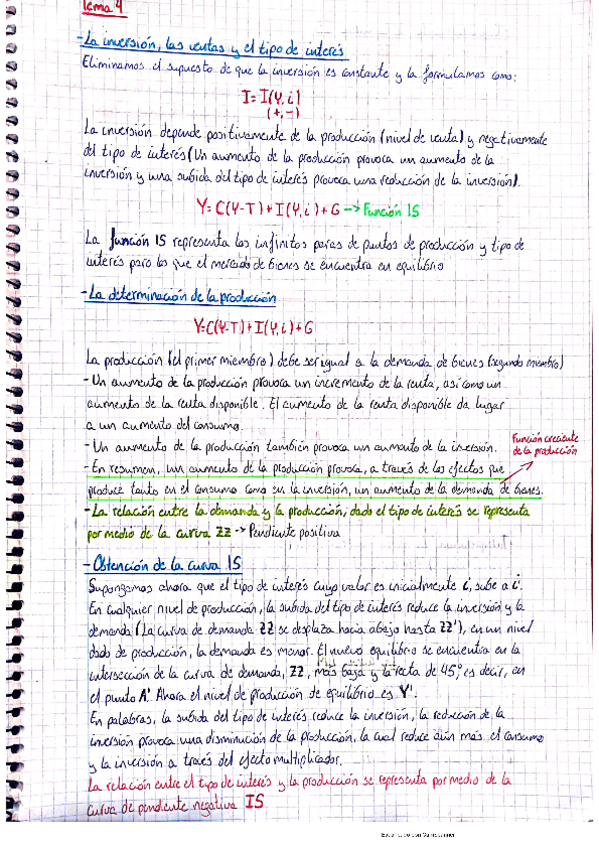 Tema 4
- La inversión, las ventas y el tipo de interés
Eliminamos el supuesto de que la inversión es constante y la formulamos como:
I = I(Y, i)
(+, -)
La inversión depende positivamente de la producción (nivel de venta) y negativamente
del tipo de interés (Un aumento de la producción provoca un aumento de la
inversión y una subida del tipo de interés provoca una reducción de la inversión).
Y = C(Y-T) + I(Y, i) + G -> Función IS
La función IS representa los infinitos pares de puntos de producción y tipo de
interés para los que el mercado de bienes se encuentra en equilibrio
- La determinación de la producción
Y = C(Y-T) + I(Y, i) + G
La producción (el primer miembro) debe ser igual a la demanda de bienes (segundo miembro)
- Un aumento de la producción provoca un incremento de la renta, así como un
aumento de la renta disponible. El aumento de la renta disponible da lugar
a un aumento del consumo.
- Un aumento de la producción también provoca un aumento de la inversión.
Función creciente
de la producción
- En resumen, un aumento de la producción provoca, a través de los efectos que
produce tanto en el consumo como en la inversión, un aumento de la demanda de bienes.
- La relación entre la demanda y la producción, dado el tipo de interés se representa
por medio de la curva ZZ -> Pendiente positiva
- Obtención de la curva IS
Supongamos ahora que el tipo de interés cuyo valor es inicialmente i, sube a i'.
En cualquier nivel de producción, la subida del tipo de interés reduce la inversión y la
demanda (La curva de demanda ZZ se desplaza hacia abajo hasta ZZ'), en un nivel
dado de producción, la demanda es menor. El nuevo equilibrio se encuentra en la
intersección de la curva de demanda, ZZ, más baja y la recta de 45°, es decir, en
el punto A'. Ahora el nivel de producción de equilibrio es Y'.
En palabras, la subida del tipo de interés reduce la inversión, la reducción de la
inversión provoca una disminución de la producción, la cual reduce aún más el consumo
y la inversión a través del efecto multiplicador.
La relación entre el tipo de interés y la producción se representa por medio de la
curva de pendiente negativa IS